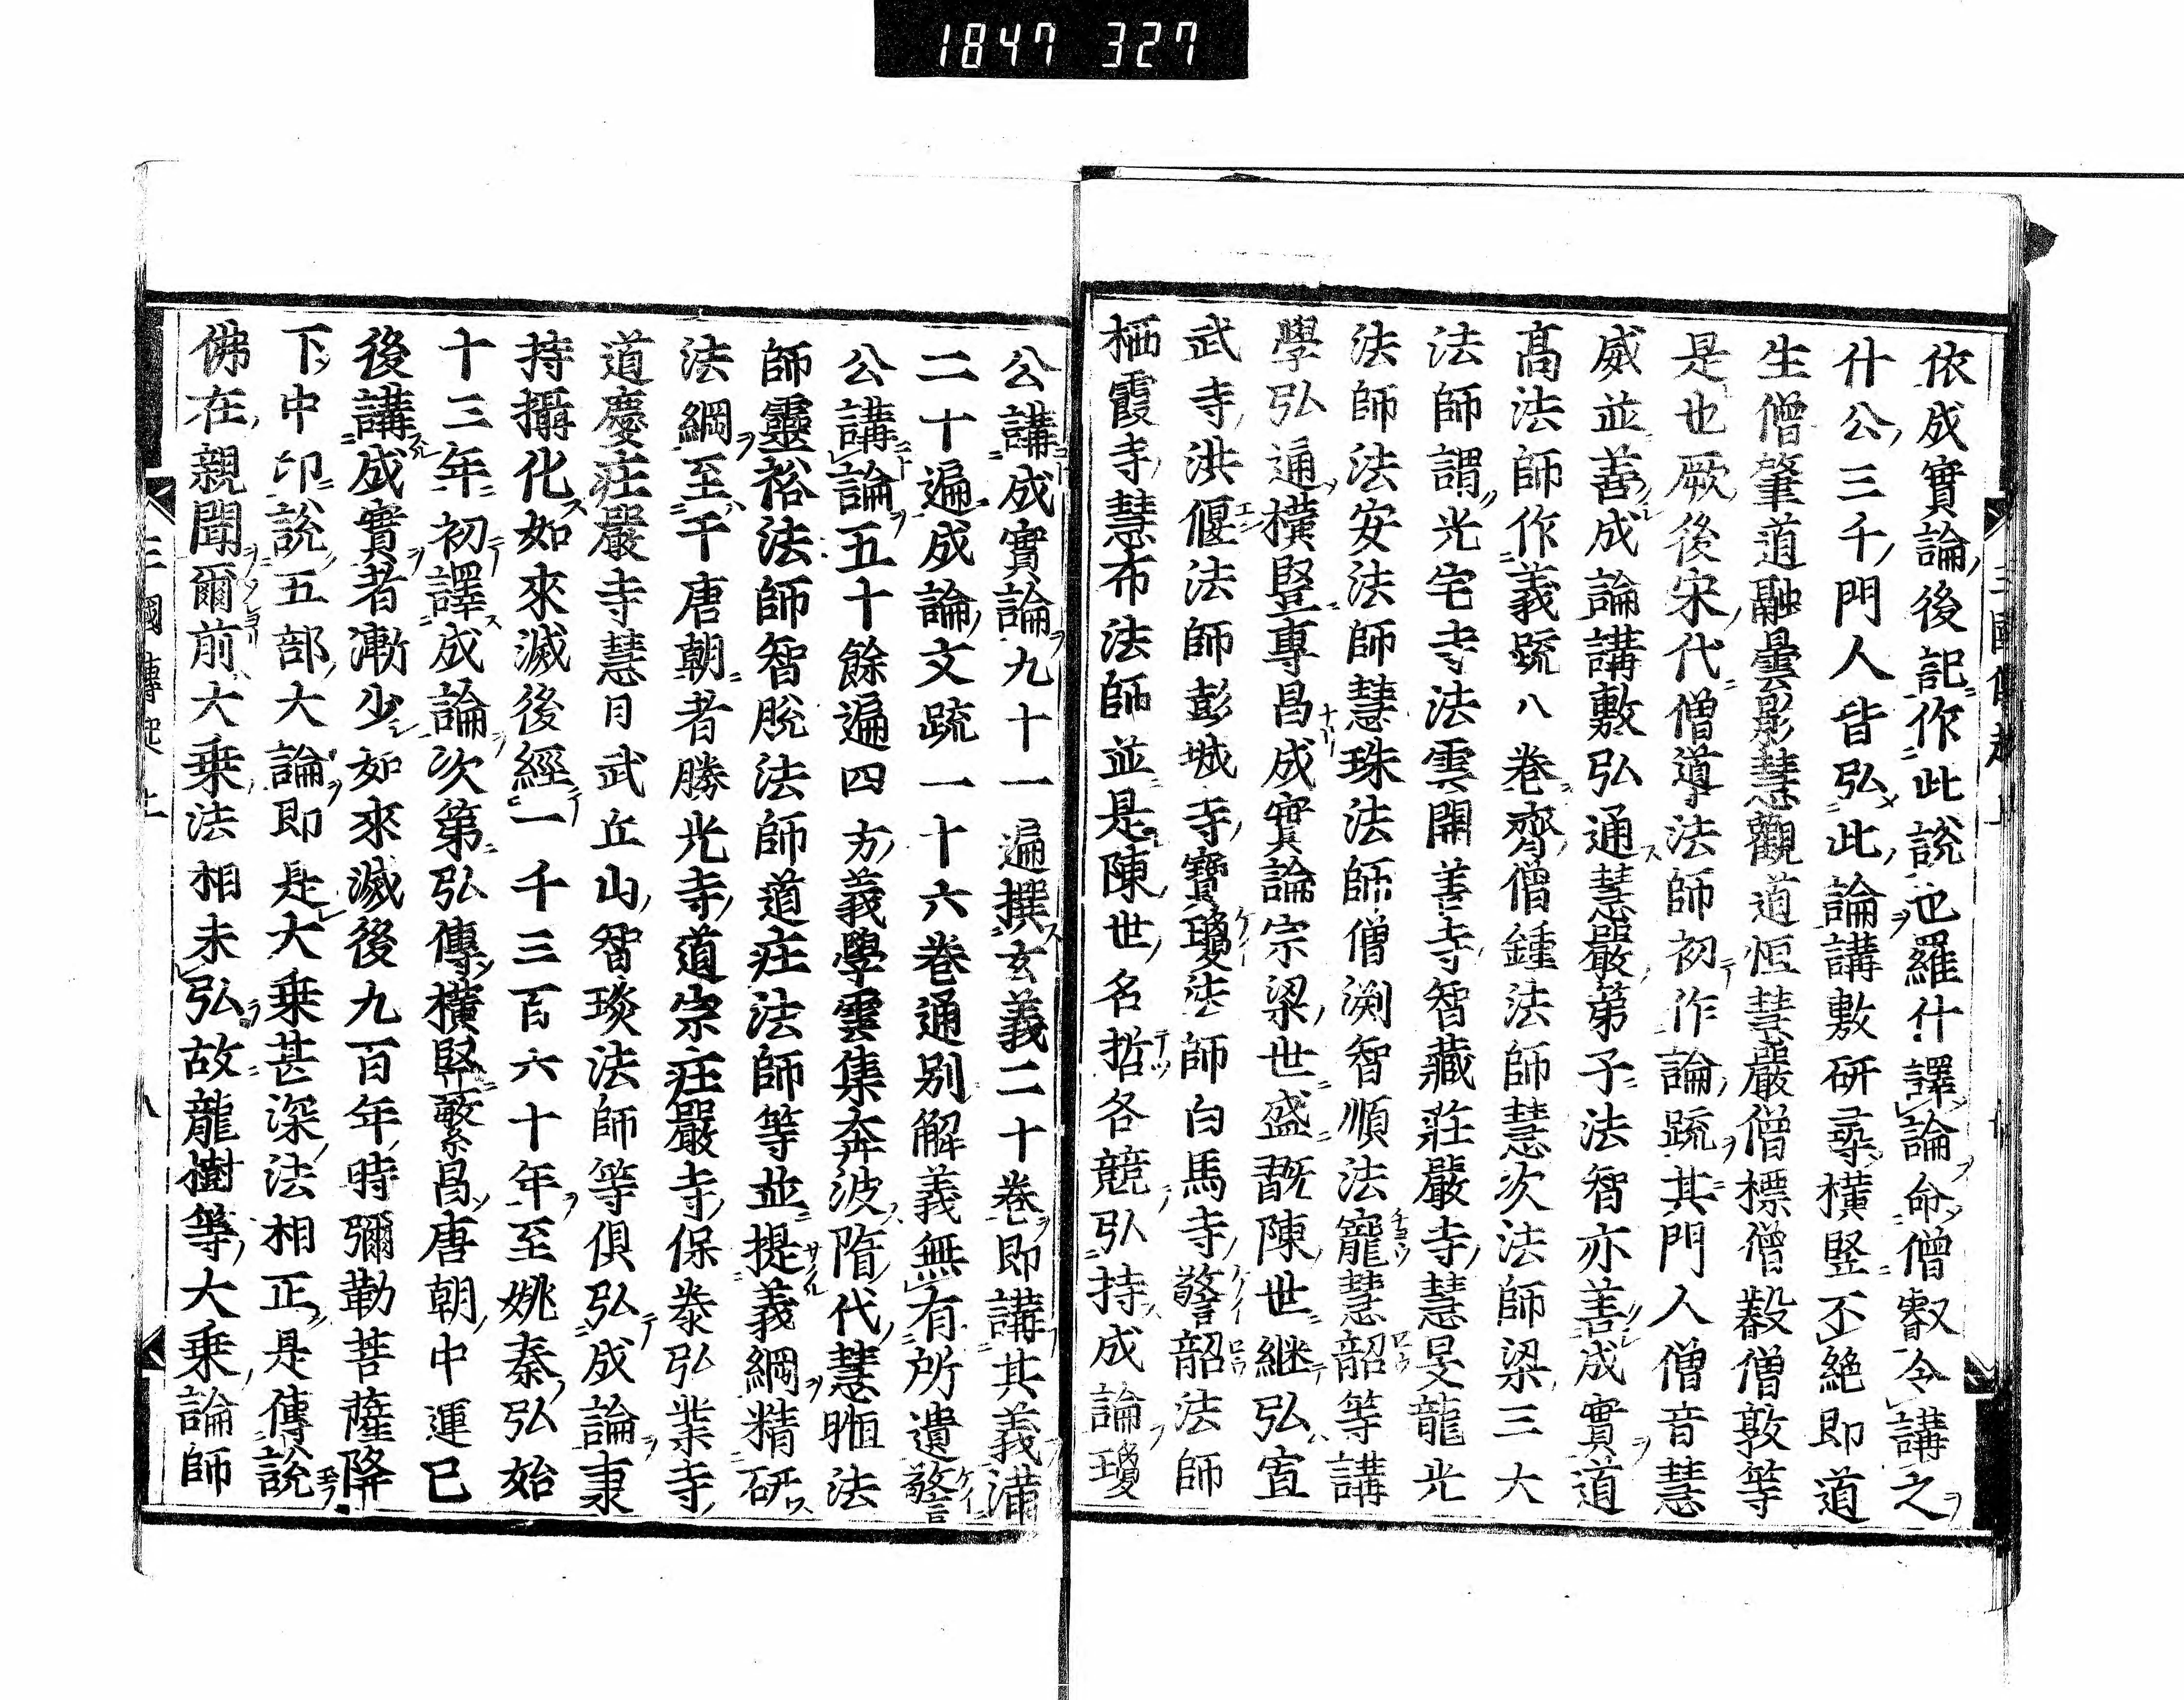 1847 327
依成實論後記作此說也羅什譯論命僧叡令講之
什公三千門人皆弘此論講敷研尋橫竪不絕即道
生僧肇道融曇影慧觀道恒慧嚴僧標僧㲄僧敦等
是也厥後宋代僧導法師初作論疏其門人僧音慧
威並善成論講敷弘通慧嚴第子法智亦善成實道
高法師作義疏八卷齊僧鍾法師慧次法師梁三大
法師謂光宅寺法雲開善寺智藏莊嚴寺慧旻龍光
法師法安法師慧珠法師僧渕智順法寵慧韶等講
學弘通橫竪專昌成實論宗梁世盛翫陳世継弘宣
武寺洪偃法師彭城寺寶瓊法師白馬寺警韶法師
栖霞寺慧布法師並是陳世名哲各競弘持成論瓊
公講成實論九十一遍撰玄義二十卷即講其義滿
二十遍成論文疏一十六卷通別解義無有所遺警
公講論五十餘遍四方義學雲集奔波隋代慧暅法
師靈裕法師智脫法師道庄法師等並提義綱精研
法綱至千唐朝者勝光寺道宗庄嚴寺保㳟弘業寺
道慶庄嚴寺慧日武丘山智琰法師等俱弘成論秉
持攝化如來滅後經一千三百六十年至姚秦弘始
十三年初譯成論次第弘傳橫竪繁昌唐朝中運已
後講成實者漸少如來滅後九百年時彌勒菩薩降
下中印說五部大論即是大乘甚深法相正是傳說
佛在親聞爾前大乘法相未弘故龍樹等大乘論師
三國傳起上
三國傳起上 八